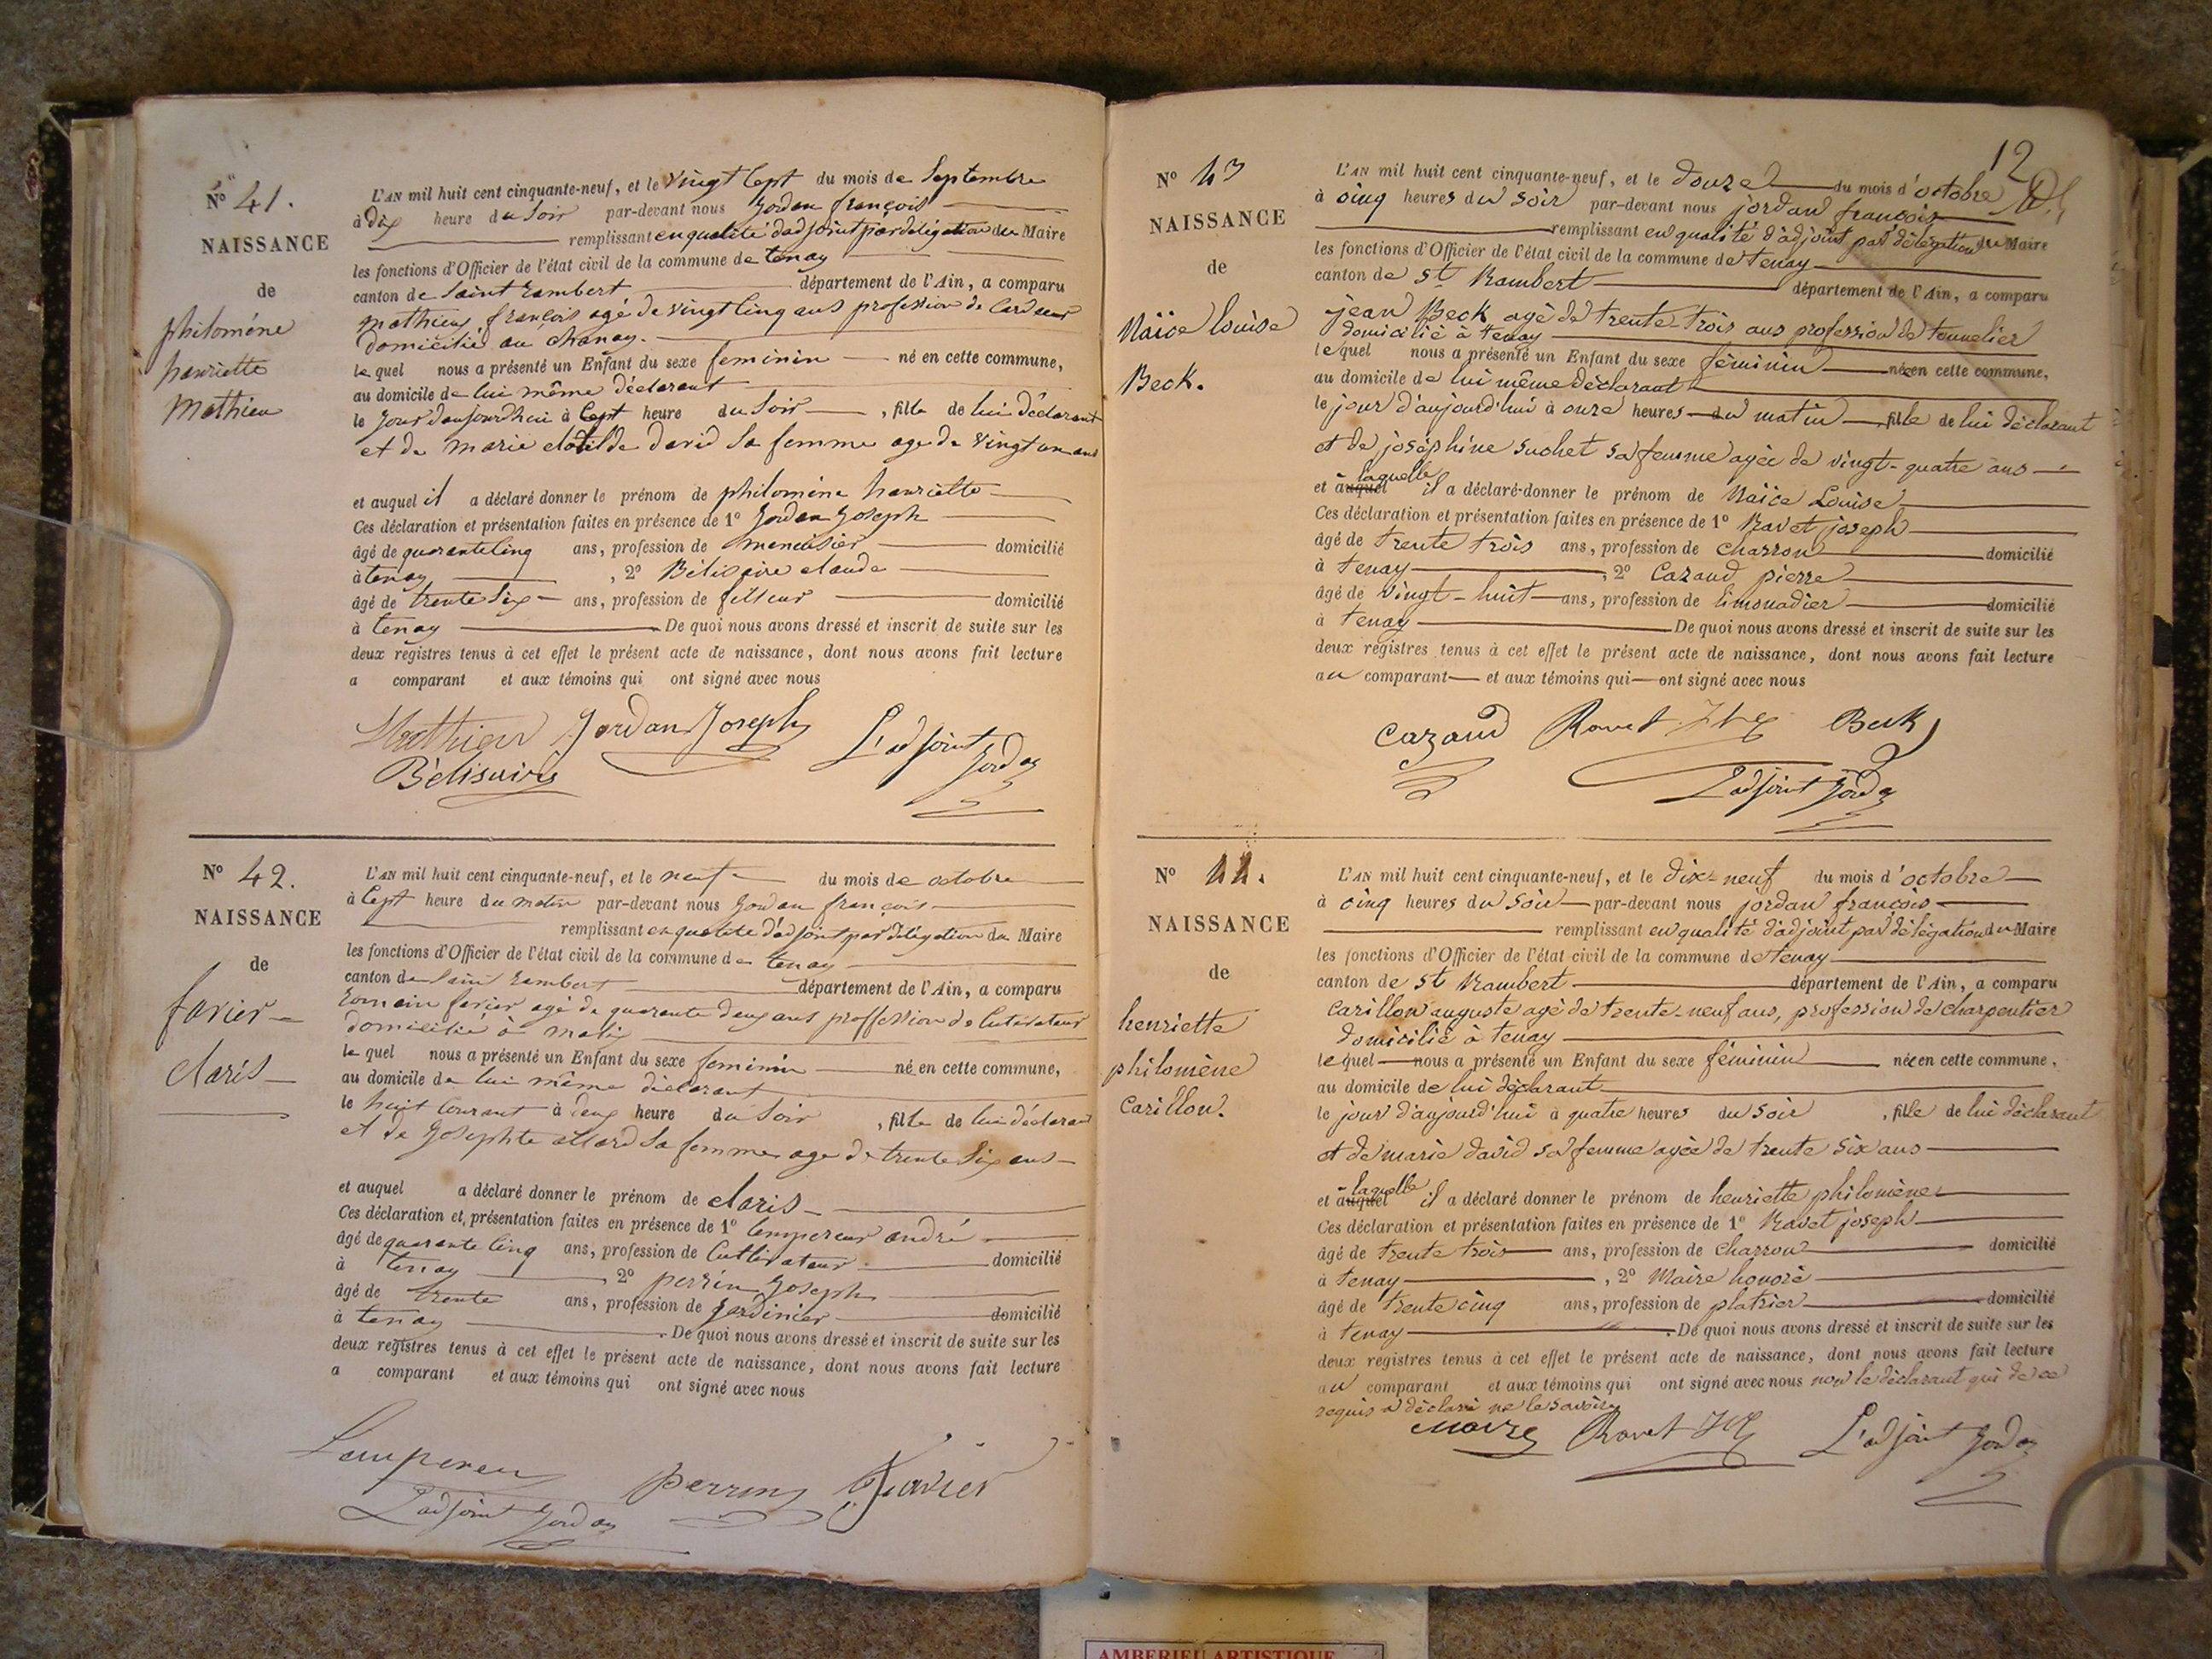 Nº 41.
NAISSANCE
de
philomène
henriette
Mathieu
L'AN mil huit cent cinquante-neuf, et le vingt Sept du mois de Septembre
à dix heure du Soir par-devant nous Jordan françois
remplissant en qualité d'adjoint par délégation du Maire
les fonctions d'Officier de l'état civil de la commune de tenay
canton de Saint rambert département de l'Ain, a comparu
mathieu françois agé de vingt Cinq ans profession de Cardeur
domicilié au chanay.
le quel nous a présenté un Enfant du sexe feminin né en cette commune,
au domicile de lui même déclarant
le Jour daujourdhui à Sept heure du Soir, fille de lui déclarant
et de marie clotilde david Sa femme age de vingt un ans
et auquel il a déclaré donner le prénom de philomène henriette
Ces déclaration et présentation faites en présence de 1º Jordan Joseph
âgé de quarante Cinq ans, profession de menuisier domicilié
à tenay, 2º Bélisaire claude
âgé de trente Six ans, profession de fileur domicilié
à tenay De quoi nous avons dressé et inscrit de suite sur les
deux registres tenus à cet effet le présent acte de naissance, dont nous avons fait lecture
a comparant et aux témoins qui ont signé avec nous
Mathieu Jordan Joseph L'adjoint
Bélisaire Jordan
Nº 42.
NAISSANCE
de
favier
claris
L'AN mil huit cent cinquante-neuf, et le neuf du mois de octobre
à Sept heure du matin par-devant nous Jordan françois
remplissant en qualité d'adjoint par délégation du Maire
les fonctions d'Officier de l'état civil de la commune de tenay
canton de Saint rambert département de l'Ain, a comparu
romain favier agé de quarante deux ans proffession de Cutivateur
domicilié à
le quel nous a présenté un Enfant du sexe feminin né en cette commune,
au domicile de lui même déclarant
le huit Courant à deux heure du Soir, fille de lui déclarant
et de Josephte allard Sa femme age de trente Six ans
et auquel a déclaré donner le prénom de claris
Ces déclaration et présentation faites en présence de 1º Lempereur andré
âgé de quarante Cinq ans, profession de Cultivateur domicilié
à tenay, 2º perrin Joseph
âgé de trente ans, profession de Jardinier domicilié
à tenay. De quoi nous avons dressé et inscrit de suite sur les
deux registres tenus à cet effet le présent acte de naissance, dont nous avons fait lecture
a comparant et aux témoins qui ont signé avec nous
Lempereur perrin favier
L'adjoint Jordan
12
Nº 43
NAISSANCE
de
Naïce louise
Beck.
L'AN mil huit cent cinquante-neuf, et le douze du mois d'octobre
à cinq heures du soir par-devant nous jordan françois
remplissant en qualité d'adjoint par délégation du Maire
les fonctions d'Officier de l'état civil de la commune de tenay
canton de st Rambert département de l'Ain, a comparu
jean Beck agé de trente-trois ans profession de tonnelier
domicilié à tenay
le quel nous a présenté un Enfant du sexe féminin née en cette commune,
au domicile de lui même déclarant
le jour d'aujourd'hui à onze heures du matin fille de lui déclarant
et de joséphine suchet sa femme agée de vingt-quatre ans
et à auquel laquelle il a déclaré donner le prénom de Naïce Louise
Ces déclaration et présentation faites en présence de 1º Ravet joseph
âgé de trente trois ans, profession de charron domicilié
à tenay, 2º Cazaud pierre
âgé de vingt-huit ans, profession de limonadier domicilié
à tenay De quoi nous avons dressé et inscrit de suite sur les
deux registres tenus à cet effet le présent acte de naissance, dont nous avons fait lecture
au comparant et aux témoins qui ont signé avec nous
Cazaud Ravet Beck
L'adjoint Jordan
Nº 44.
NAISSANCE
de
henriette
philomène
Carillon.
L'AN mil huit cent cinquante-neuf, et le dix-neuf du mois d'octobre
à cinq heures du soir par-devant nous jordan françois
remplissant en qualité d'adjoint par délégation du Maire
les fonctions d'Officier de l'état civil de la commune de tenay
canton de st Rambert département de l'Ain, a comparu
Carillon auguste agé de trente-neuf ans, profession de charpentier
domicilié à tenay
le quel nous a présenté un Enfant du sexe féminin née en cette commune,
au domicile de lui déclarant
le jour d'aujourd'hui à quatre heures du soir, fille de lui déclarant
et de marie david sa femme agée de trente six ans
et à auquel laquelle il a déclaré donner le prénom de henriette philomène
Ces déclaration et présentation faites en présence de 1º Ravet joseph
âgé de trente trois ans, profession de charron domicilié
à tenay, 2º Maire honoré
âgé de trente cinq ans, profession de platrier domicilié
à tenay. De quoi nous avons dressé et inscrit de suite sur les
deux registres tenus à cet effet le présent acte de naissance, dont nous avons fait lecture
au comparant et aux témoins qui ont signé avec nous non le déclarant qui de ce
requis a déclaré ne le savoir
Maire Ravet L'adjoint Jordan
AMBERIEU ARTISTIQUE